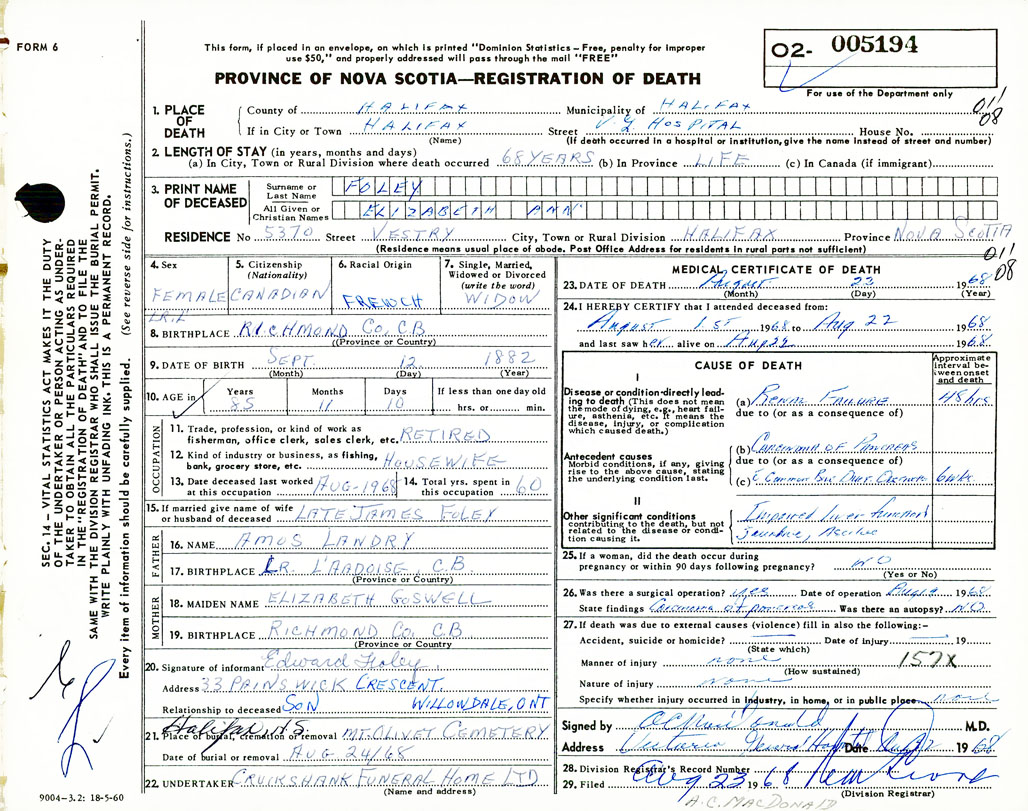 FORM 6
This form, if placed in an envelope, on which is printed "Dominion Statistics – Free, penalty for improper
use $50," and properly addressed will pass through the mail "FREE"
PROVINCE OF NOVA SCOTIA—REGISTRATION OF DEATH
O2- 005194
For use of the Department only
SEC. 14 – VITAL STATISTICS ACT MAKES IT THE DUTY
OF THE UNDERTAKER OR PERSON ACTING AS UNDER-
TAKER TO OBTAIN ALL THE PARTICULARS REQUIRED
IN THE "REGISTRATION OF DEATH" AND TO FILE THE
SAME WITH THE DIVISION REGISTRAR WHO SHALL ISSUE THE BURIAL PERMIT.
WRITE PLAINLY WITH UNFADING INK. THIS IS A PERMANENT RECORD.
Every item of information should be carefully supplied. (See reverse side for instructions.)
1. PLACE OF DEATH
County of HALIFAX Municipality of HALIFAX
011
08
If in City or Town HALIFAX Street V.G. HOSPITAL House No.
(Name) (If death occurred in a hospital or institution, give the name instead of street and number)
2. LENGTH OF STAY (in years, months and days)
(a) In City, Town or Rural Division where death occurred 68 YEARS (b) In Province LIFE (c) In Canada (if immigrant)
3. PRINT NAME OF DECEASED
Surname or Last Name FOLEY
All Given or Christian Names ELIZABETH ANN
RESIDENCE No 5370 Street VESTRY City, Town or Rural Division HALIFAX Province NOVA SCOTIA
(Residence means usual place of abode. Post Office Address for residents in rural parts not sufficient)
011
08
4. Sex FEMALE
5. Citizenship (Nationality) CANADIAN
6. Racial Origin FRENCH
7. Single, Married, Widowed or Divorced (write the word) WIDOW
8. BIRTHPLACE RICHMOND CO. C.B
(Province or Country)
9. DATE OF BIRTH SEPT. 12 1882
(Month) (Day) (Year)
10. AGE in Years 85 Months 11 Days 10 If less than one day old hrs. or min.
OCCUPATION
11. Trade, profession, or kind of work as
fisherman, office clerk, sales clerk, etc. RETIRED
12. Kind of industry or business, as fishing,
bank, grocery store, etc. HOUSEWIFE
13. Date deceased last worked at this occupation AUG-1968 14. Total yrs. spent in this occupation 60
15. If married give name of wife
or husband of deceased LATE JAMES FOLEY
FATHER
16. NAME AMOS LANDRY
17. BIRTHPLACE LR. L'ARDOISE, C.B
(Province or Country)
MOTHER
18. MAIDEN NAME ELIZABETH GOSWELL
19. BIRTHPLACE RICHMOND CO. C.B
(Province or Country)
20. Signature of informant Edward Foley
Address 33 PAINSWICK CRESCENT.
Relationship to deceased SON WILLOWDALE, ONT
Halifax N.S.
21. Place of burial, cremation or removal MT. OLIVET CEMETERY
Date of burial or removal AUG 24/68
22. UNDERTAKER CRUIKSHANK FUNERAL HOME LTD
(Name and address)
9004–3.2: 18-5-60
MEDICAL CERTIFICATE OF DEATH
23. DATE OF DEATH August 23 1968
(Month) (Day) (Year)
24. I HEREBY CERTIFY that I attended deceased from:
August 1st 1968 to Aug 22 1968
and last saw her alive on Aug 22 1968
CAUSE OF DEATH
Approximate interval between onset and death
I
Disease or condition directly leading to death (This does not mean the mode of dying, e.g., heart failure, asthenia, etc. It means the disease, injury, or complication which caused death.)
(a) RENAL FAILURE 48 hrs
due to (or as a consequence of)
Antecedent causes
Morbid conditions, if any, giving rise to the above cause, stating the underlying condition last.
(b) CARCINOMA OF PANCREAS
due to (or as a consequence of)
(c) C Common Bile Duct
II
Other significant conditions
contributing to the death, but not related to the disease or condition causing it.
Impaired liver function
Jaundice,
25. If a woman, did the death occur during
pregnancy or within 90 days following pregnancy? NO
(Yes or No)
26. Was there a surgical operation? yes Date of operation 1968
State findings Carcinoma of pancreas Was there an autopsy? NO
27. If death was due to external causes (violence) fill in also the following:–
Accident, suicide or homicide? Date of injury 19
(State which)
Manner of injury none 157X
(How sustained)
Nature of injury none
Specify whether injury occurred in industry, in home, or in public place none
Signed by M.D.
Address Victoria General Date 1968
28. Division Registrar's Record Number
29. Filed Aug 23 1968
(Division Registrar)
A.C. MACDONALD